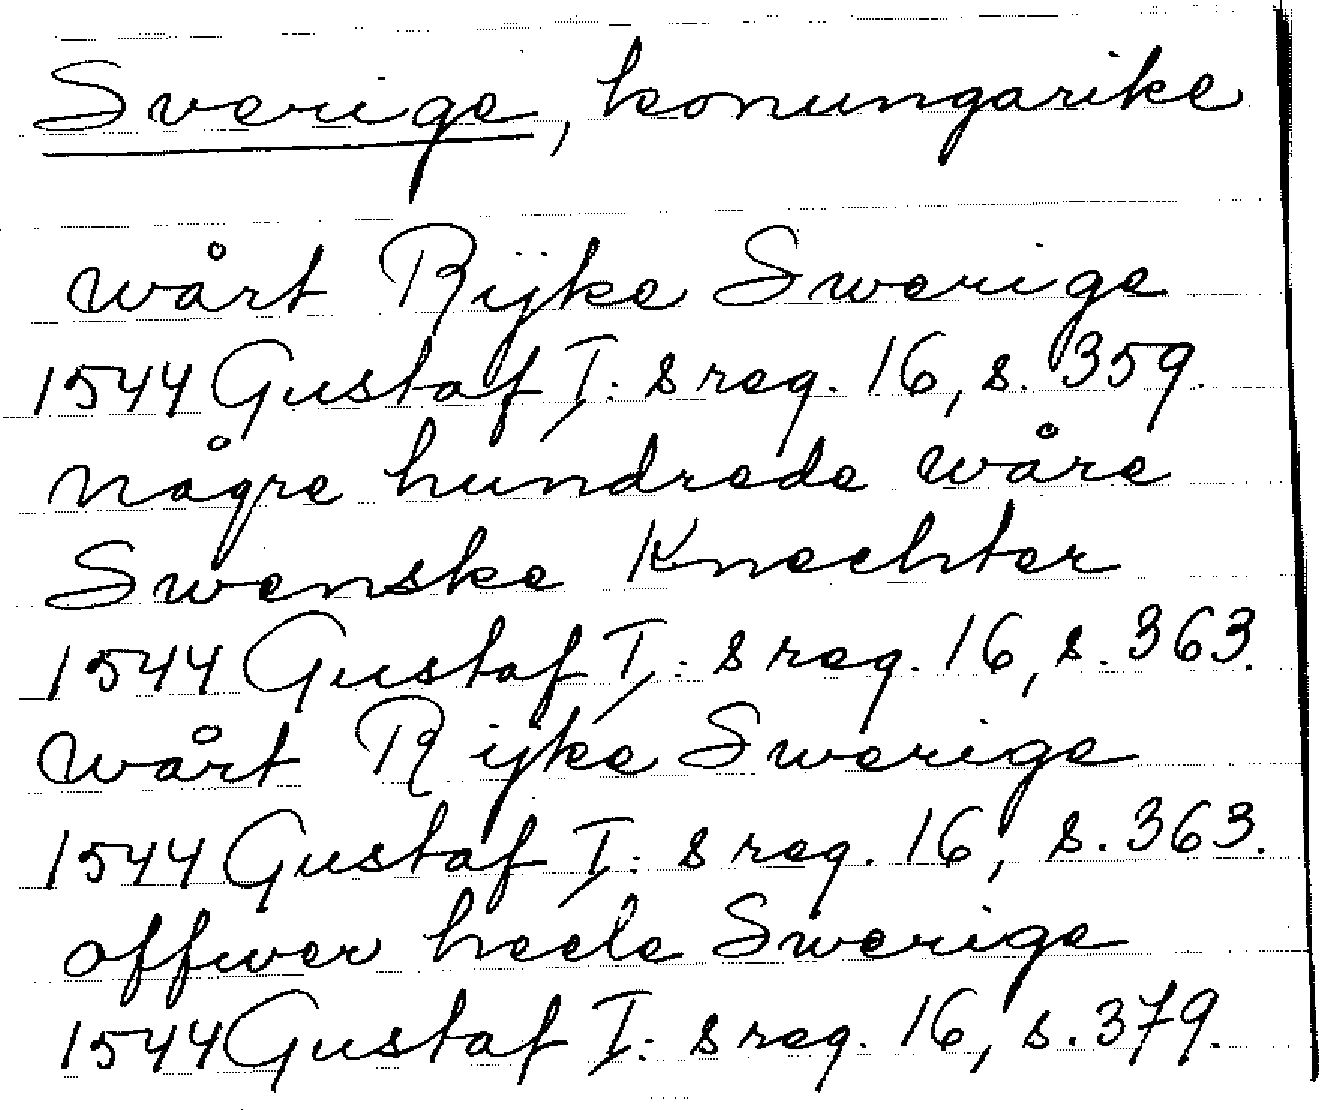 Sverige, konungarike
wårt Rijke Swerige
1544 Gustaf I:s reg. 16, s. 359.
någre hundrede wåre
Swenske Knechter
1544 Gustaf I:s reg. 16, s. 363.
wårt Rijke Swerige
1544 Gustaf I:s reg. 16, s. 363.
offwer heele Swerige
1544 Gustaf I:s reg. 16, s. 379.